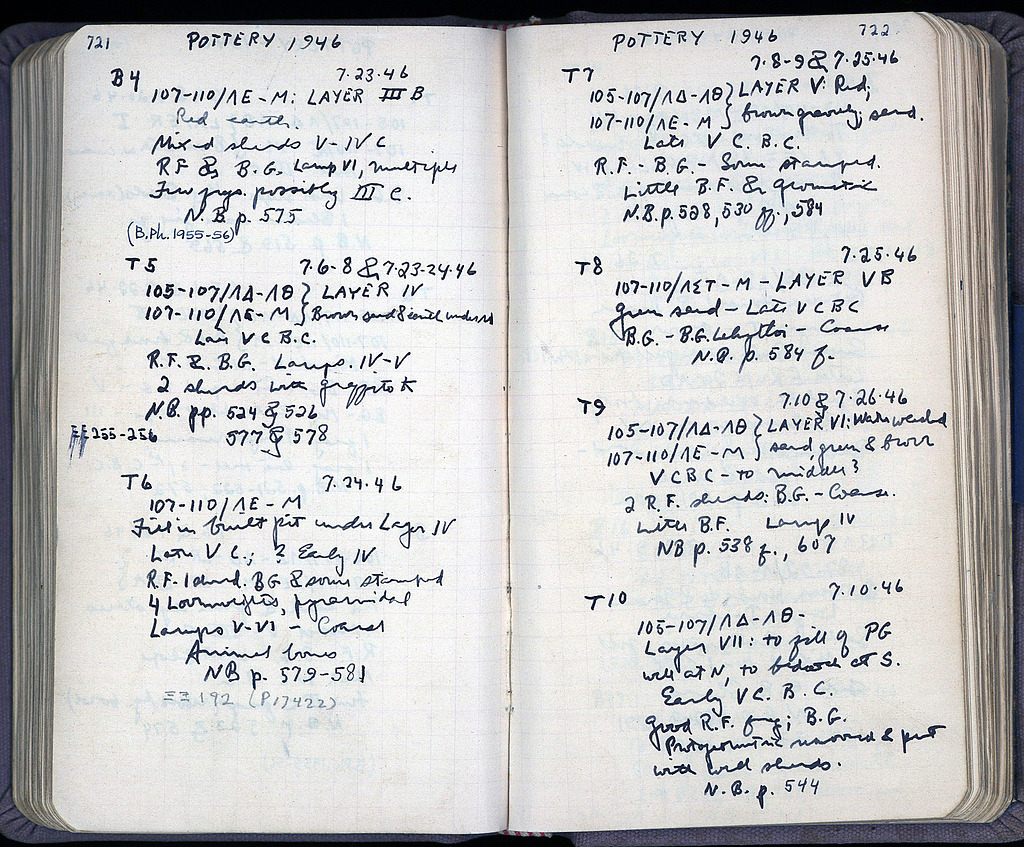 721
POTTERY 1946
B4
7.23.46
107-110/ΛΕ-Μ: LAYER III B
Red earth.
Mixed sherds V-IV C
RF & B.G. Lamp VI, multiple
Few frgs. possibly III C.
N.B. p. 575
(B.Ph. 1955-56)
T5
7.6-8 & 7.23-24.46
105-107/ΛΔ-ΛΘ } LAYER IV
107-110/ΛΕ-Μ } Brown sand & earth under
Late V C B.C.
R.F. & B.G. Lamps IV-V
2 sherds with graffito
N.B. pp. 524 & 526
577 & 578
ΞΞ 255-256
T6
7.24.46
107-110/ΛΕ-Μ
Fill in built pit under Layer IV
Late V C., ? Early IV
R.F. 1 sherd. BG & some stamped
4 Loomweights, pyramidal
Lamps V-VI - Coarse
Animal bones
NB p. 579-581
ΞΞ 192 (P17422)
POTTERY 1946
722
T7
7.8-9 & 7.25.46
105-107/ΛΔ-ΛΘ } LAYER V: Red,
107-110/ΛΕ-Μ } brown gravelly sand.
Late V C. B.C.
R.F. - B.G. - Some stamped.
Little B.F. & geometric
N.B. p. 528, 530 ff., 584
T8
7.25.46
107-110/ΛΣΤ-Μ - LAYER VB
green sand - Late V C BC
B.G. - B.G. Lekythoi - Coarse
N.B. p. 584 f.
T9
7.10 & 7.26.46
105-107/ΛΔ-ΛΘ } LAYER VI: Water washed
107-110/ΛΕ-Μ } sand, green & brown
V C BC - to middle?
2 R.F. sherds: B.G. - Coarse.
Little B.F. Lamp IV
NB p. 538 f., 607
T10
7.10.46
105-107/ΛΔ-ΛΘ-
Layer VII: to fill of PG
well at N, to bedrock at S.
Early V C. B.C.
good R.F. frg; B.G.
Protogeometric removed & put
with well sherds.
N.B. p. 544